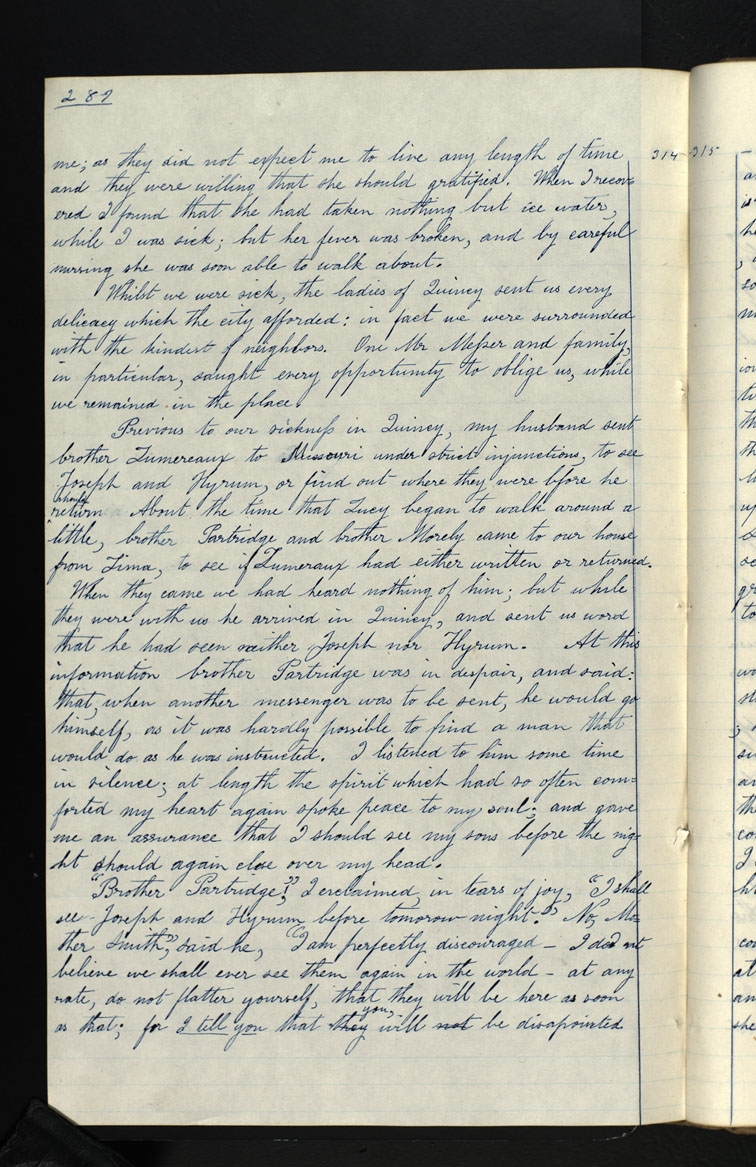 289
me; as they did not expect me to live any length of time 314 315
and they were willing that she should gratified. When I recov-
ered I found that she had taken nothing but ice water,
while I was sick; but her fever was broken, and by careful
nursing she was soon able to walk about.
Whilst we were sick, the ladies of Quincy sent us every
delicacy which the city afforded: in fact we were surrounded
with the kindest of neighbors. One Mr Messer and family,
in particular, saught every opportunity to oblige us, while
we remained in the place.
Previous to our sickness in Quincy, my husband sent
brother Lumereaux to Missouri under strict injunctions, to see
Joseph and Hyrum, or find out where they were bfore he
should
return About the time that Lucy began to walk around a
little, brother Partridge and brother Morely came to our house
from Lima, to see if Lumeraux had either written or returned.
When they came we had heard nothing of him; but while
they were with us he arrived in Quincy, and sent us word
that he had seen neither Joseph nor Hyrum. At this
information brother Partridge was in despair, and said:
that, when another messenger was to be sent, he would go
himself, as it was hardly possible to find a man that
would do as he was instructed. I listened to him some time
in silence; at length the spirit which had so often com=
forted my heart again spoke peace to my soul; and gave
me an assurance that I should see my sons before the nig-
ht should again close over my head.
"Brother Partridge!", I exclaimed in tears of joy, "I shall
see Joseph and Hyrum before tomorow night." No, Mo=
ther Smith", said he, "I am perfectly discouraged – I do not
believe we shall ever see them again in the world – at any
rate, do not flatter yourself, that they will be here as soon
you,
as that; for I tell you that they will not be disapointed